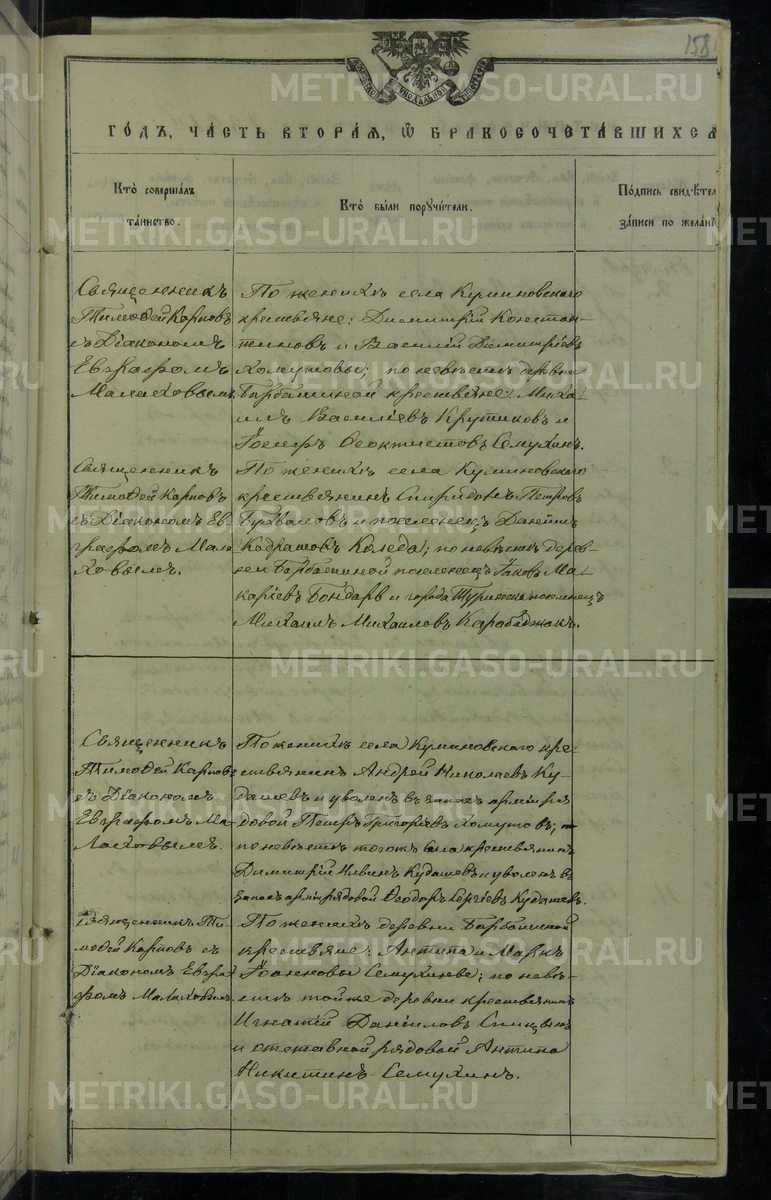 158
МОСКОВСКОЙ СѴНОДАЛЬНОЙ ТИПОГРАФІИ
ГО́ДЪ, ЧА́СТЬ ВТОРА́Я, Ѽ БРАКОСОЧЕТА́ВШИХСЯ
Кто̀ соверша́лъ
та́инство.
Кто̀ бы́ли порꙋчи́тели.
По́дпись свидѣ́тел
за́писи по жела́нї
Священникъ
Тимоѳей Карповъ
съ Діакономъ
Евграфомъ
Малаховымъ
По женихѣ села Куминовскаго
крестьяне: Димитрій Констан-
тиновъ и Василій Димитріевъ
Хомутовы; по невѣстѣ деревни
Барбашиной крестьяне: Миха-
илъ Василіевъ Крутиковъ и
Іосифъ Ѳеоктистовъ Семухинъ.
Священникъ
Тимоѳей Карповъ
съ Діакономъ Ев-
графомъ Мала-
ховымъ.
По женихѣ села Куминовскаго
крестьянинъ Спиридонъ Петровъ
и поселенецъ Даніилъ
Кадрашовъ Коледа; по невѣстѣ дерев-
ни Барбашиной поселенецъ Іаковъ Ма-
каріевъ Бондарь и города Туринска поселенецъ
Михаилъ Михаиловъ Карабаджакъ.
Священникъ
Тимоѳей Карповъ
съ Діакономъ
Евграфомъ Ма-
лаховымъ.
По женихѣ села Куминовскаго кре-
стьянинъ Андрей Николаевъ Ку-
дашевъ и уволенъ въ запасъ арміи ря-
довой Петръ Григоріевъ Хомутовъ;
по невѣстѣ тогожъ села крестьянинъ
Димитрій Ильинъ Кудашевъ и уволенъ въ
запасъ арміи рядовой Ѳеодоръ Сергіевъ Кудашевъ.
Священникъ Ти-
моѳей Карповъ съ
Діакономъ Евгра-
фомъ Малаховымъ.
По женихѣ деревни Барбашиной
крестьяне: Антипа и Маркъ
Іоанновы Семухины; по невѣ-
стѣ тойже деревни крестьянинъ
Игнатій Даніиловъ Спицынъ
и отставной рядовой Антипа
Никитинъ Семухинъ.
METRIKI.GASO-URAL.RU